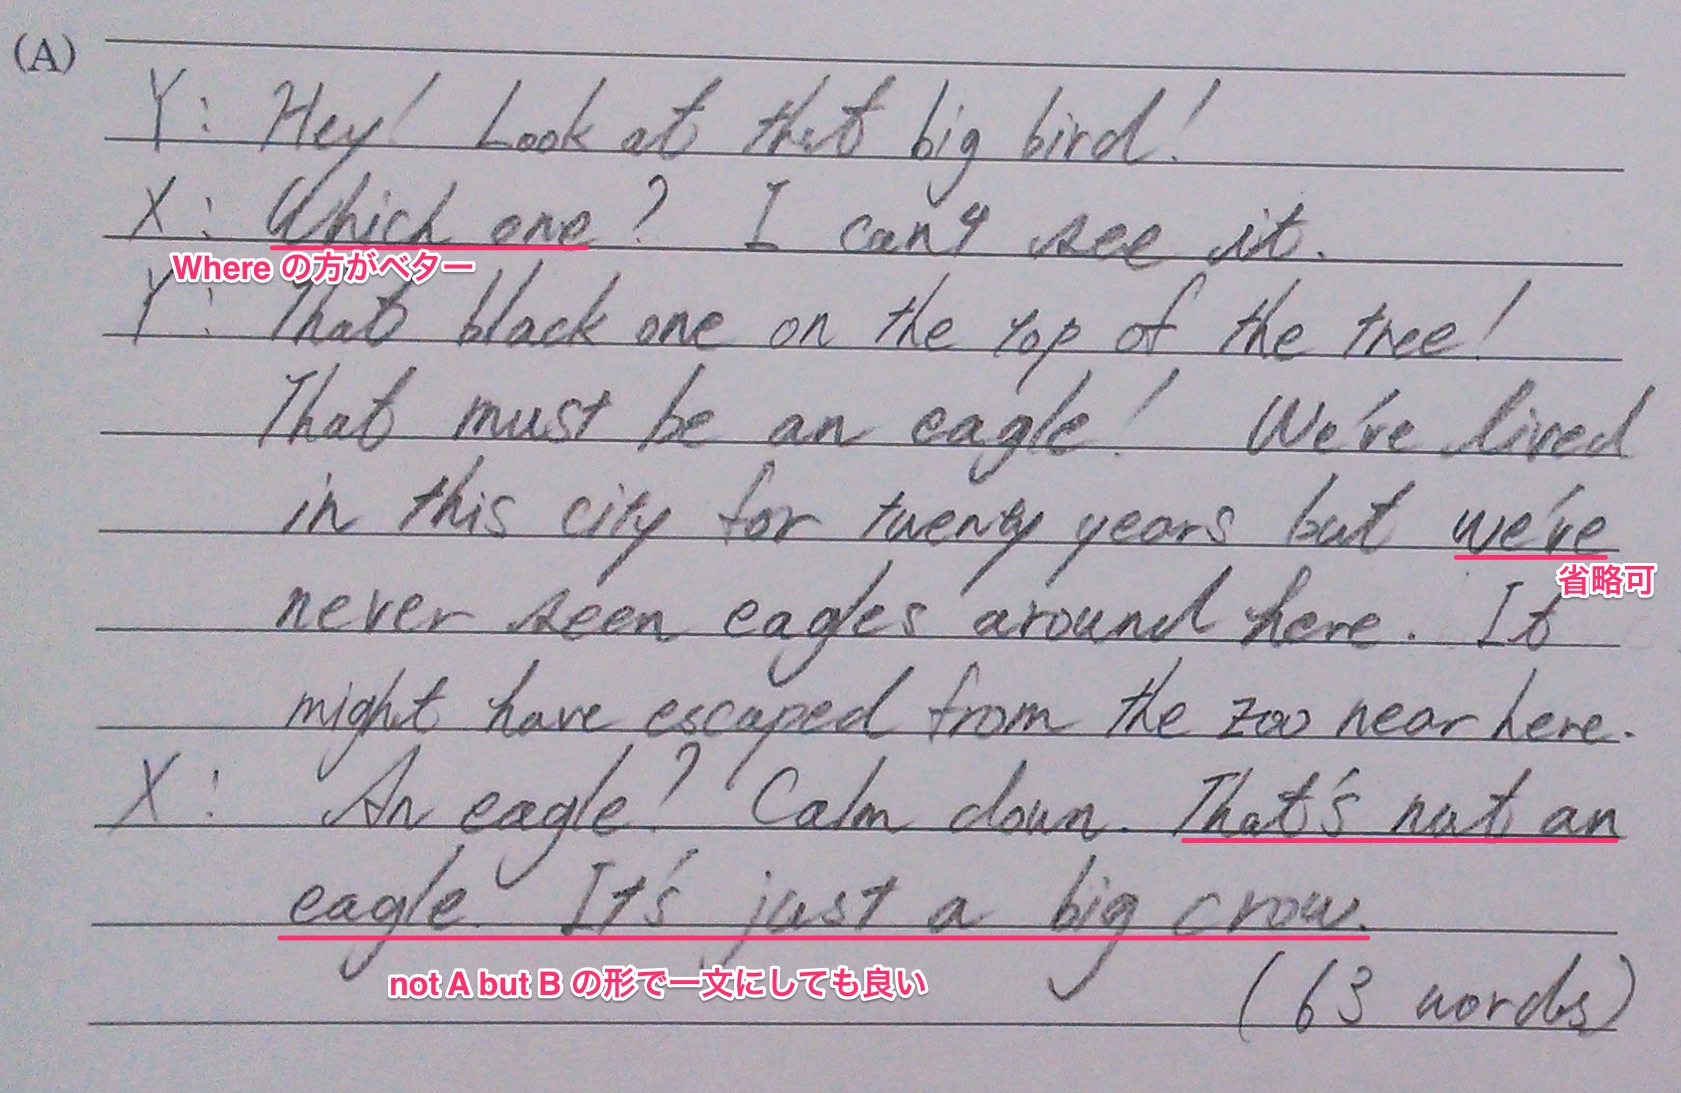 (A)
Y: Hey! Look at that big bird!
X: Which one? I can't see it.
Where の方がベター
Y: That black one on the top of the tree!
That must be an eagle! We've lived
in this city for twenty years but we've
省略可
never seen eagles around here. It
might have escaped from the zoo near here.
X: An eagle? Calm down. That's not an
eagle. It's just a big crow.
not A but B の形で一文にしても良い
(63 words)